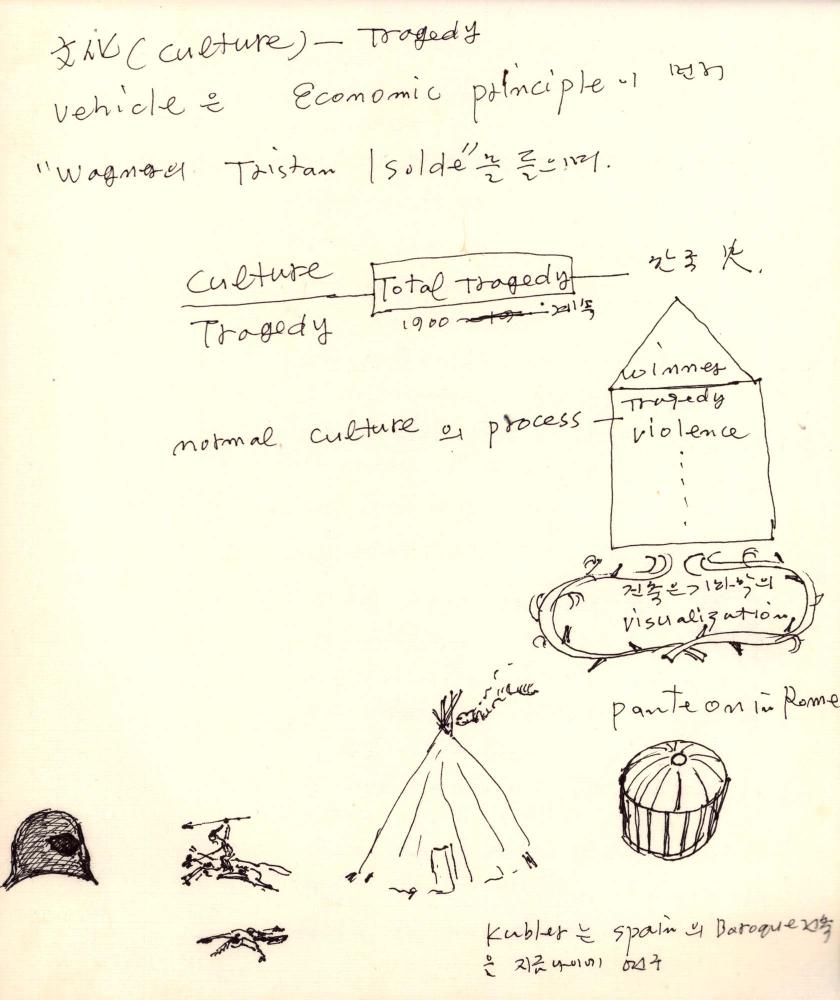 文化 (culture) — Tragedy
vehicle은 Economic principle이 먼저
"Wagner의 Tristan Isolde"를 들으며.
culture
Total Tragedy
Tragedy
1900
winner
Tragedy
normal culture의 process
violence
건축은 기하학의
visualization
panteon in Rome
Kubler는 spain의 Baroque 건축
은 지금 나이에 연구